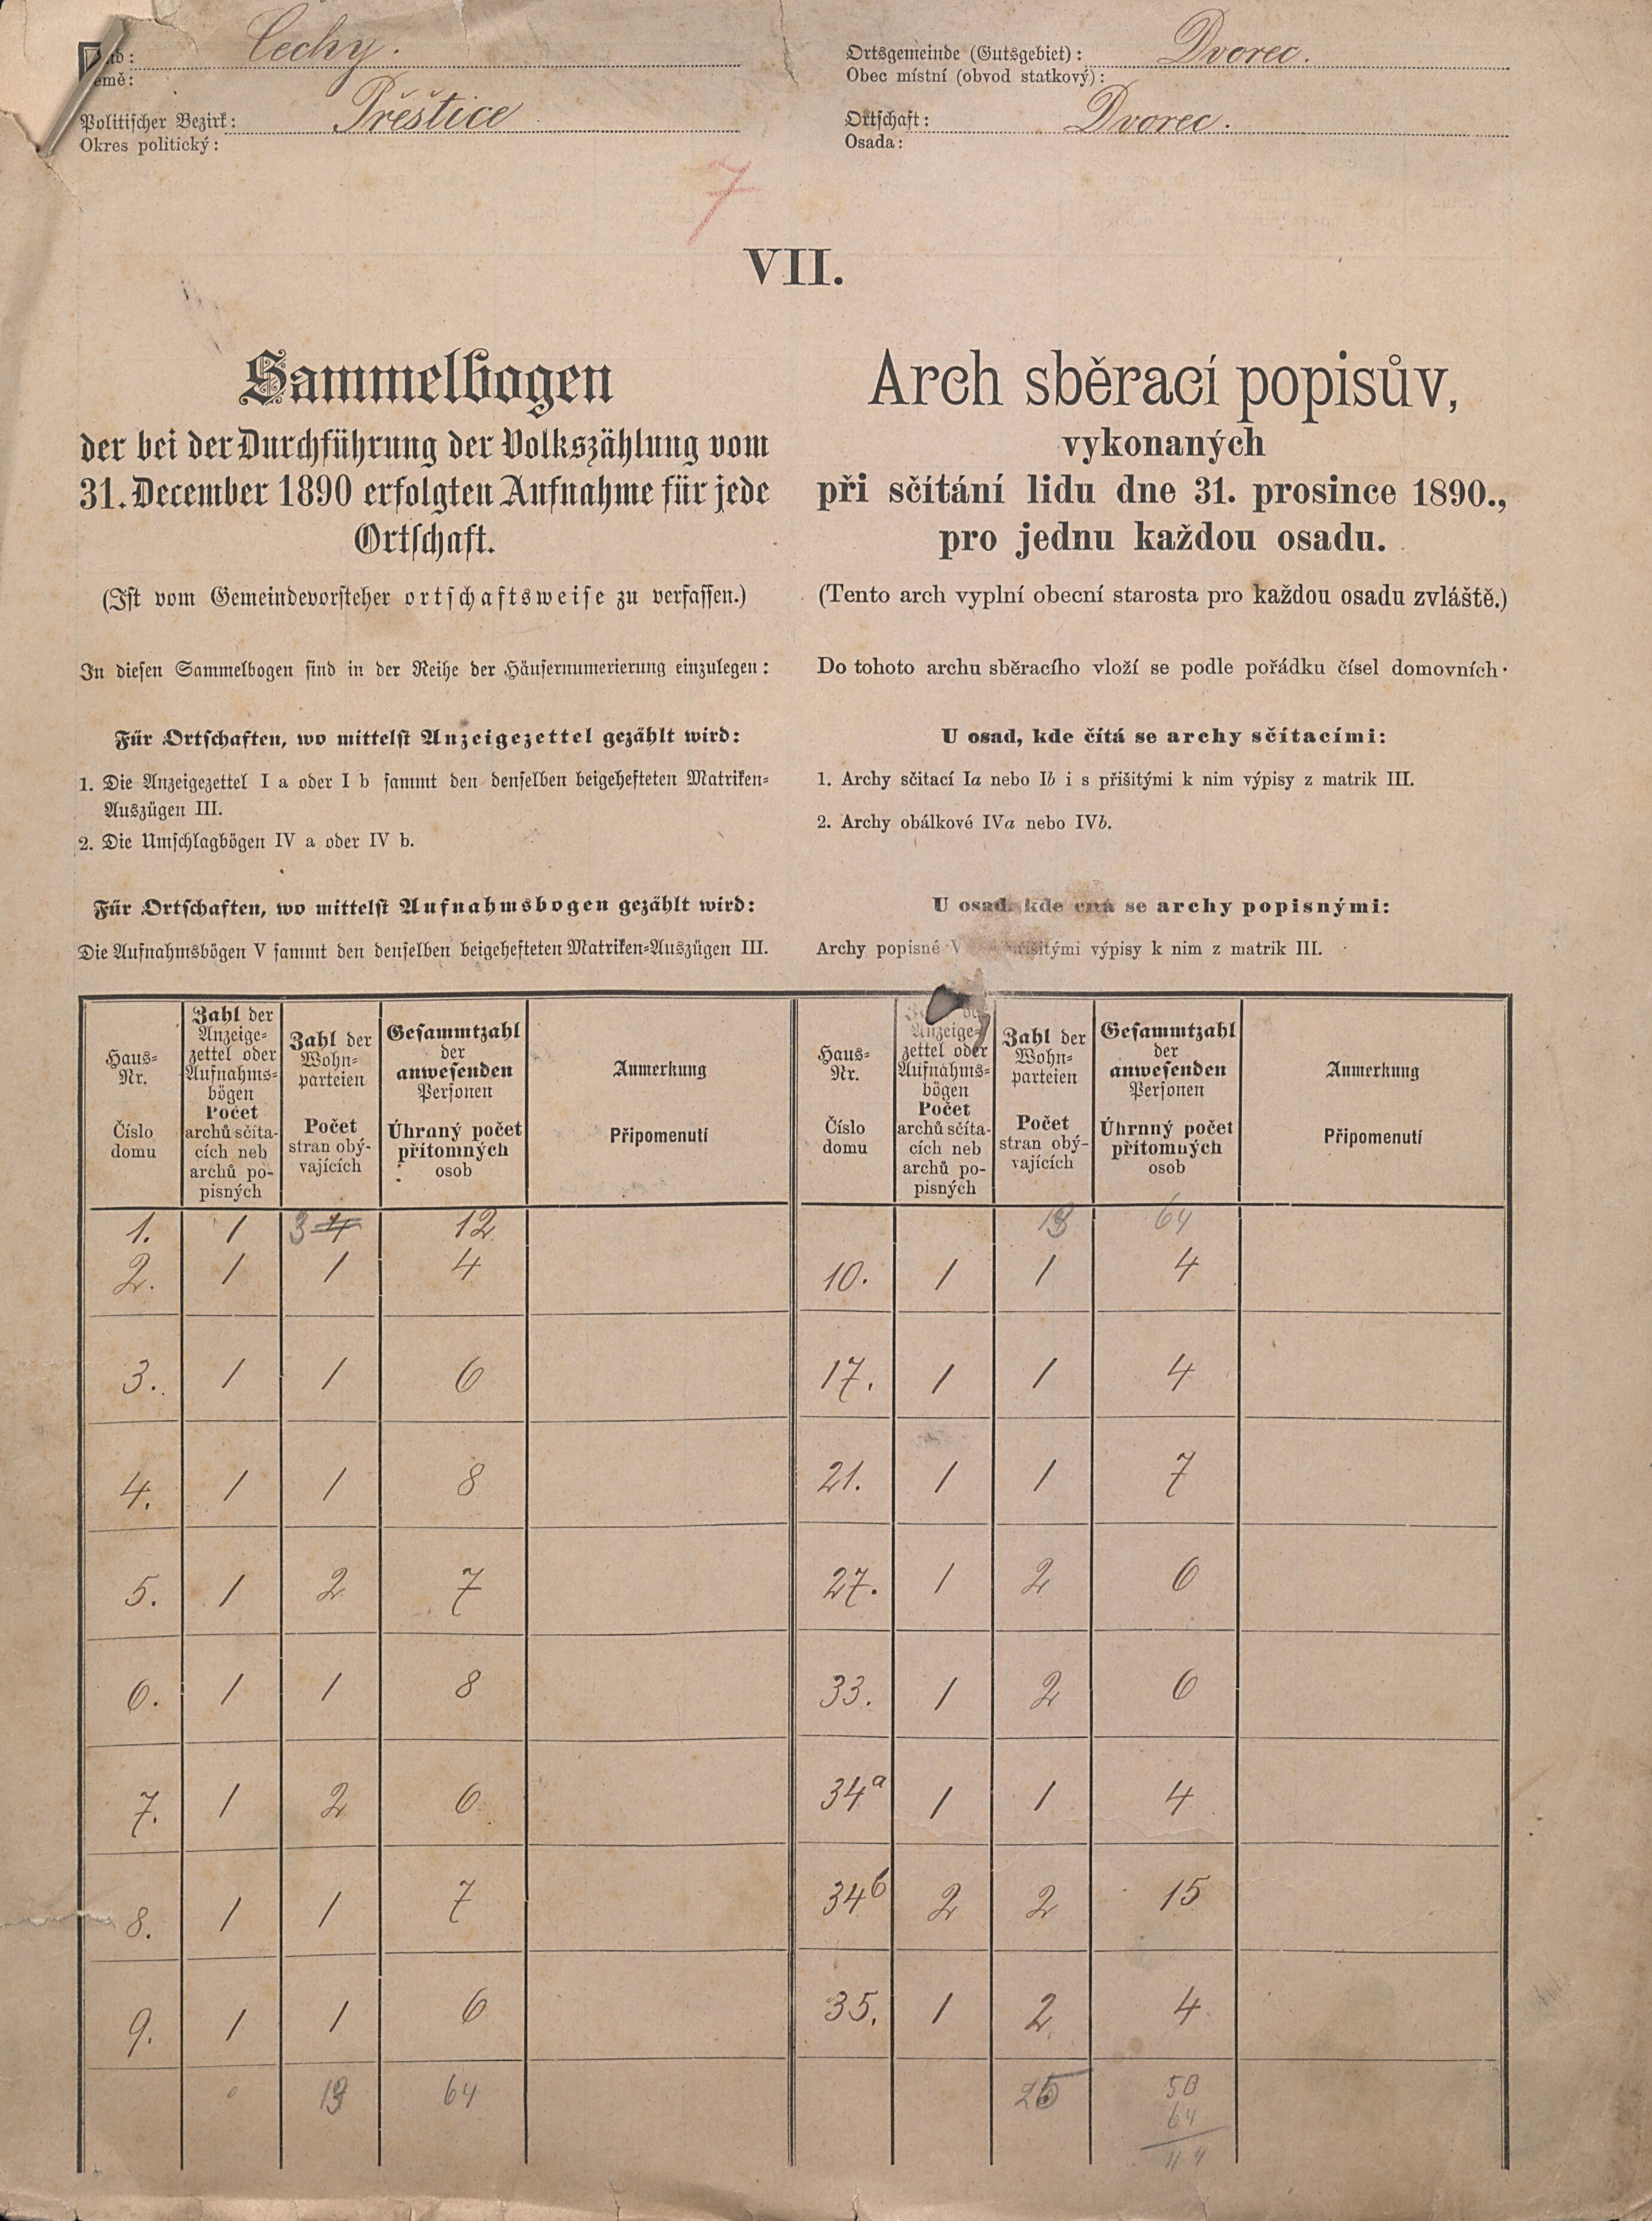 Čechy.
emě:
Politischer Bezirk: Přeštice
Okres politický:
Ortsgemeinde (Gutsgebiet): Dvorec.
Obec místní (obvod statkový):
Ortschaft: Dvorec.
Osada:
7
VII.
Sammelbogen
der bei der Durchführung der Volkszählung vom
31. December 1890 erfolgten Aufnahme für jede
Ortschaft.
(Ist vom Gemeindevorsteher ortschaftsweise zu verfassen.)
In diesen Sammelbogen sind in der Reihe der Häusernumerierung einzulegen:
Für Ortschaften, wo mittelst Anzeigezettel gezählt wird:
1. Die Anzeigezettel I a oder I b sammt den denselben beigehefteten Matriken-
Auszügen III.
2. Die Umschlagbögen IV a oder IV b.
Für Ortschaften, wo mittelst Aufnahmsbogen gezählt wird:
Die Aufnahmsbögen V sammt den denselben beigehefteten Matriken-Auszügen III.
Arch sběrací popisův,
vykonaných
při sčítání lidu dne 31. prosince 1890.,
pro jednu každou osadu.
(Tento arch vyplní obecní starosta pro každou osadu zvláště.)
Do tohoto archu sběracího vloží se podle pořádku čísel domovních·
U osad, kde čítá se archy sčítacími:
1. Archy sčitací Ia nebo Ib i s přišitými k nim výpisy z matrik III.
2. Archy obálkové IVa nebo IVb.
U osad, kde čítá se archy popisnými:
Archy popisné V přišitými výpisy k nim z matrik III.
Haus-
Nr.
Číslo
domu
Zahl der
Anzeige-
zettel oder
Aufnahms-
bögen
Počet
archů sčíta-
cích neb
archů po-
pisných
Zahl der
Wohn-
parteien
Počet
stran obý-
vajících
Gesammtzahl
der
anwesenden
Personen
Úhrnný počet
přítomných
osob
Anmerkung
Připomenutí
Haus-
Nr.
Číslo
domu
Anzeige-
zettel oder
Aufnahms-
bögen
Počet
archů sčíta-
cích neb
archů po-
pisných
Zahl der
Wohn-
parteien
Počet
stran obý-
vajících
Gesammtzahl
der
anwesenden
Personen
Úhrnný počet
přítomných
osob
Anmerkung
Připomenutí
1. 1 3 4 12
2. 1 1 4
3. 1 1 6
4. 1 1 8
5. 1 2 7
6. 1 1 8
7. 1 2 6
8. 1 1 7
9. 1 1 6
13 64
13 64
10. 1 1 4
17. 1 1 4
21. 1 1 7
27. 1 2 6
33. 1 2 6
34a 1 1 4
34b 2 2 15
35. 1 2 4
25 50
64
114